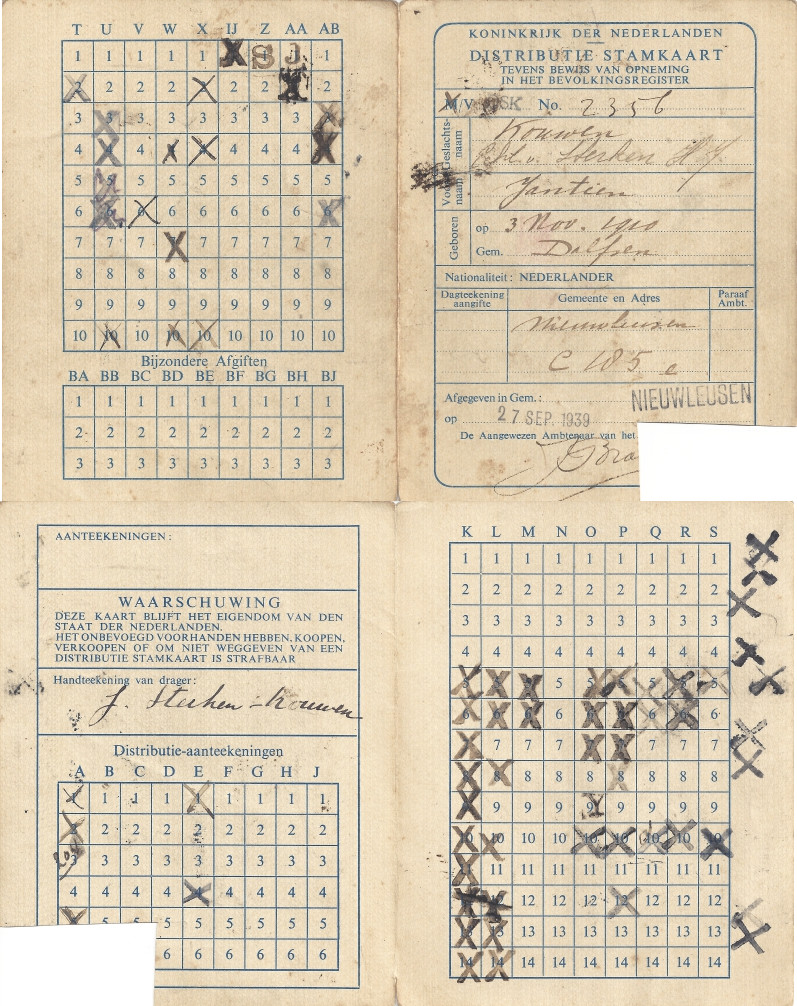 T U V W X IJ Z AA AB
1 1 1 1 1 1 1
2 2 2 2 2 2 2 2
3 3 3 3 3 3 3 3 3
4 4 4 4 4 4 4 4
5 5 5 5 5 5 5 5
6 6 6 6 6 6 6 6 6
7 7 7 7 7 7 7 7
8 8 8 8 8 8 8 8 8
9 9 9 9 9 9 9 9 9
10 10 10 10 10 10 10 10 10
Bijzondere Afgiften
BA BB BC BD BE BF BG BH BJ
1 1 1 1 1 1 1 1 1
2 2 2 2 2 2 2 2 2
3 3 3 3 3 3 3 3 3
KONINKRIJK DER NEDERLANDEN
DISTRIBUTIE STAMKAART
TEVENS BEWIJS VAN OPNEMING
IN HET BEVOLKINGSREGISTER
M/V No. 2356
Geslachts-
naam
Kouwen
Sterken
Voornaam
Jantien
Geboren
op 3 Nov. 1910
Gem. Dalfsen
Nationaliteit: NEDERLANDER
Dagteekening
aangifte
Gemeente en Adres
Paraaf
Ambt.
Nieuwleusen
C 185 e
Afgegeven in Gem.: NIEUWLEUSEN
op 27 SEP. 1939
De Aangewezen Ambtenaar van het
AANTEEKENINGEN:
WAARSCHUWING
DEZE KAART BLIJFT HET EIGENDOM VAN DEN
STAAT DER NEDERLANDEN.
HET ONBEVOEGD VOORHANDEN HEBBEN, KOOPEN,
VERKOOPEN OF OM NIET WEGGEVEN VAN EEN
DISTRIBUTIE STAMKAART IS STRAFBAAR
Handteekening van drager:
J. Sterken-Kouwen
Distributie-aanteekeningen
A B C D E F G H J
1 1 1 1 1 1 1 1 1
2 2 2 2 2 2 2 2 2
3 3 3 3 3 3 3 3 3
4 4 4 4 4 4 4 4 4
5 5 5 5 5 5 5
6 6 6 6 6 6
K L M N O P Q R S
1 1 1 1 1 1 1 1 1
2 2 2 2 2 2 2 2 2
3 3 3 3 3 3 3 3 3
4 4 4 4 4 4 4 4 4
5 5 5 5 5
6 6 6 6 6 6 6
7 7 7 7 7 7
8 8 8 8 8 8 8 8
9 9 9 9 9 9 9
10 10 10 10 10 10 10 10 10
11 11 11 11 11 11 11 11
12 12 12 12 12 12 12 12
13 13 13 13 13 13 13 13 13
14 14 14 14 14 14 14 14 14